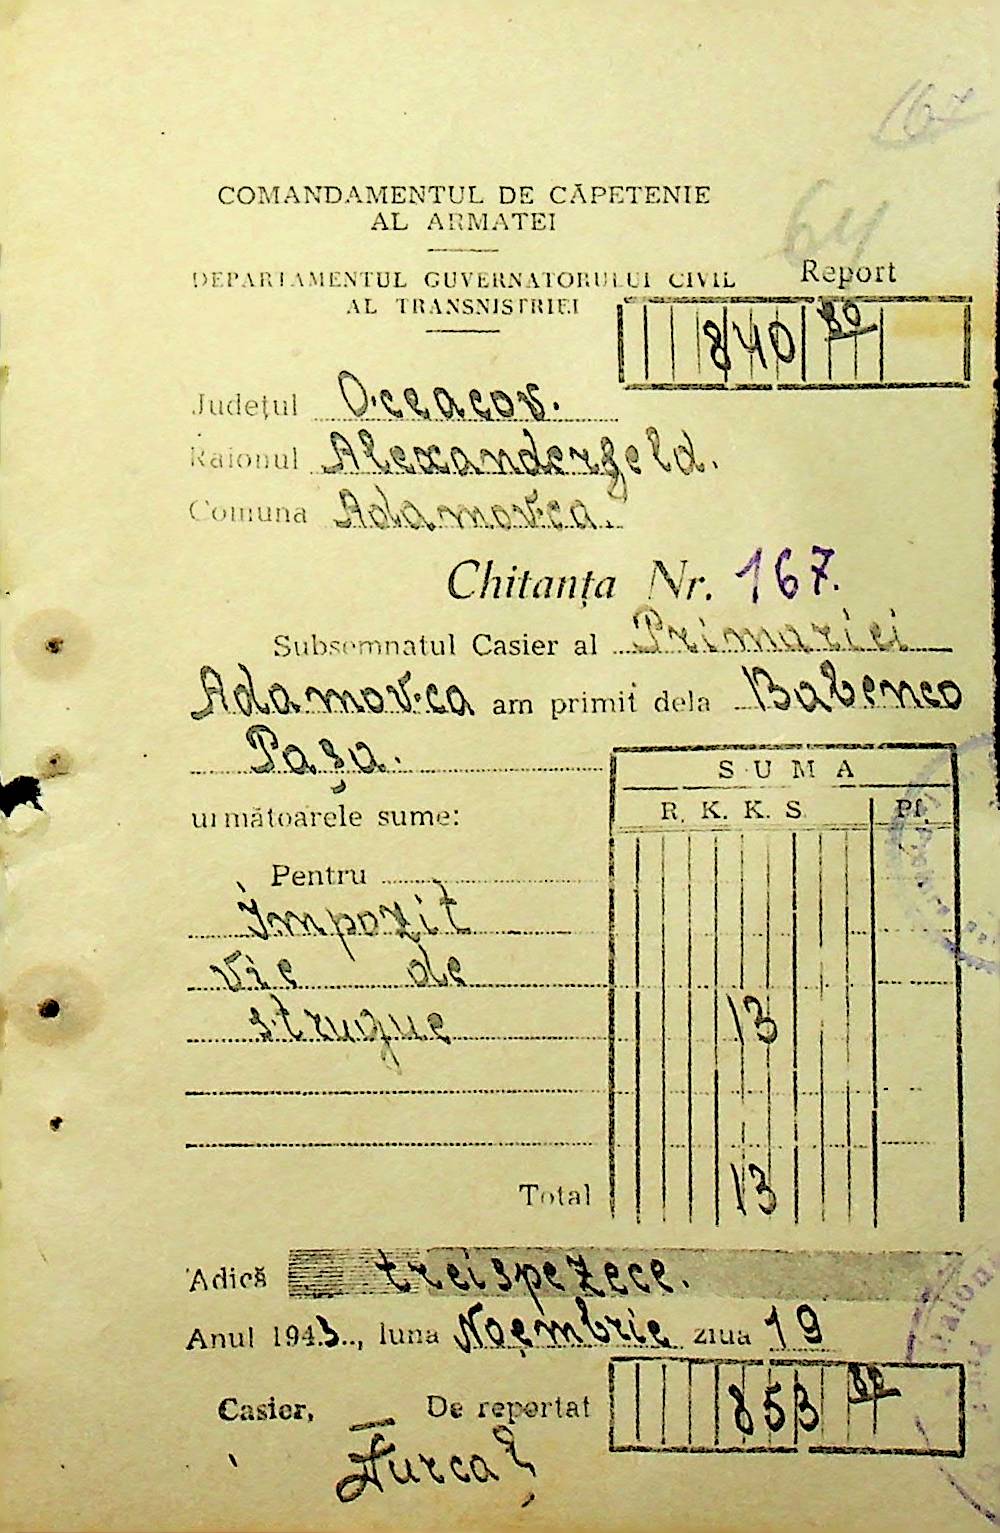 64
COMANDAMENTUL DE CĂPETENIE
AL ARMATEI
DEPARTAMENTUL GUVERNATORULUI CIVIL
AL TRANSNISTRIEI
Report
840 80
Județul Oceacov.
Raionul Alexanderfeld.
Comuna Adamovca.
Chitanța Nr. 167.
Subsemnatul Casier al Primariei
Adamovca am primit dela Babenco
Pașa.
următoarele sume:
SUMA
R. K. K. S. Pf.
Pentru
Impozit
vie de
strugue 13
Total 13
Adică treispezece.
Anul 1943.., luna Noembrie ziua 19
Casier, De reportat 853 80